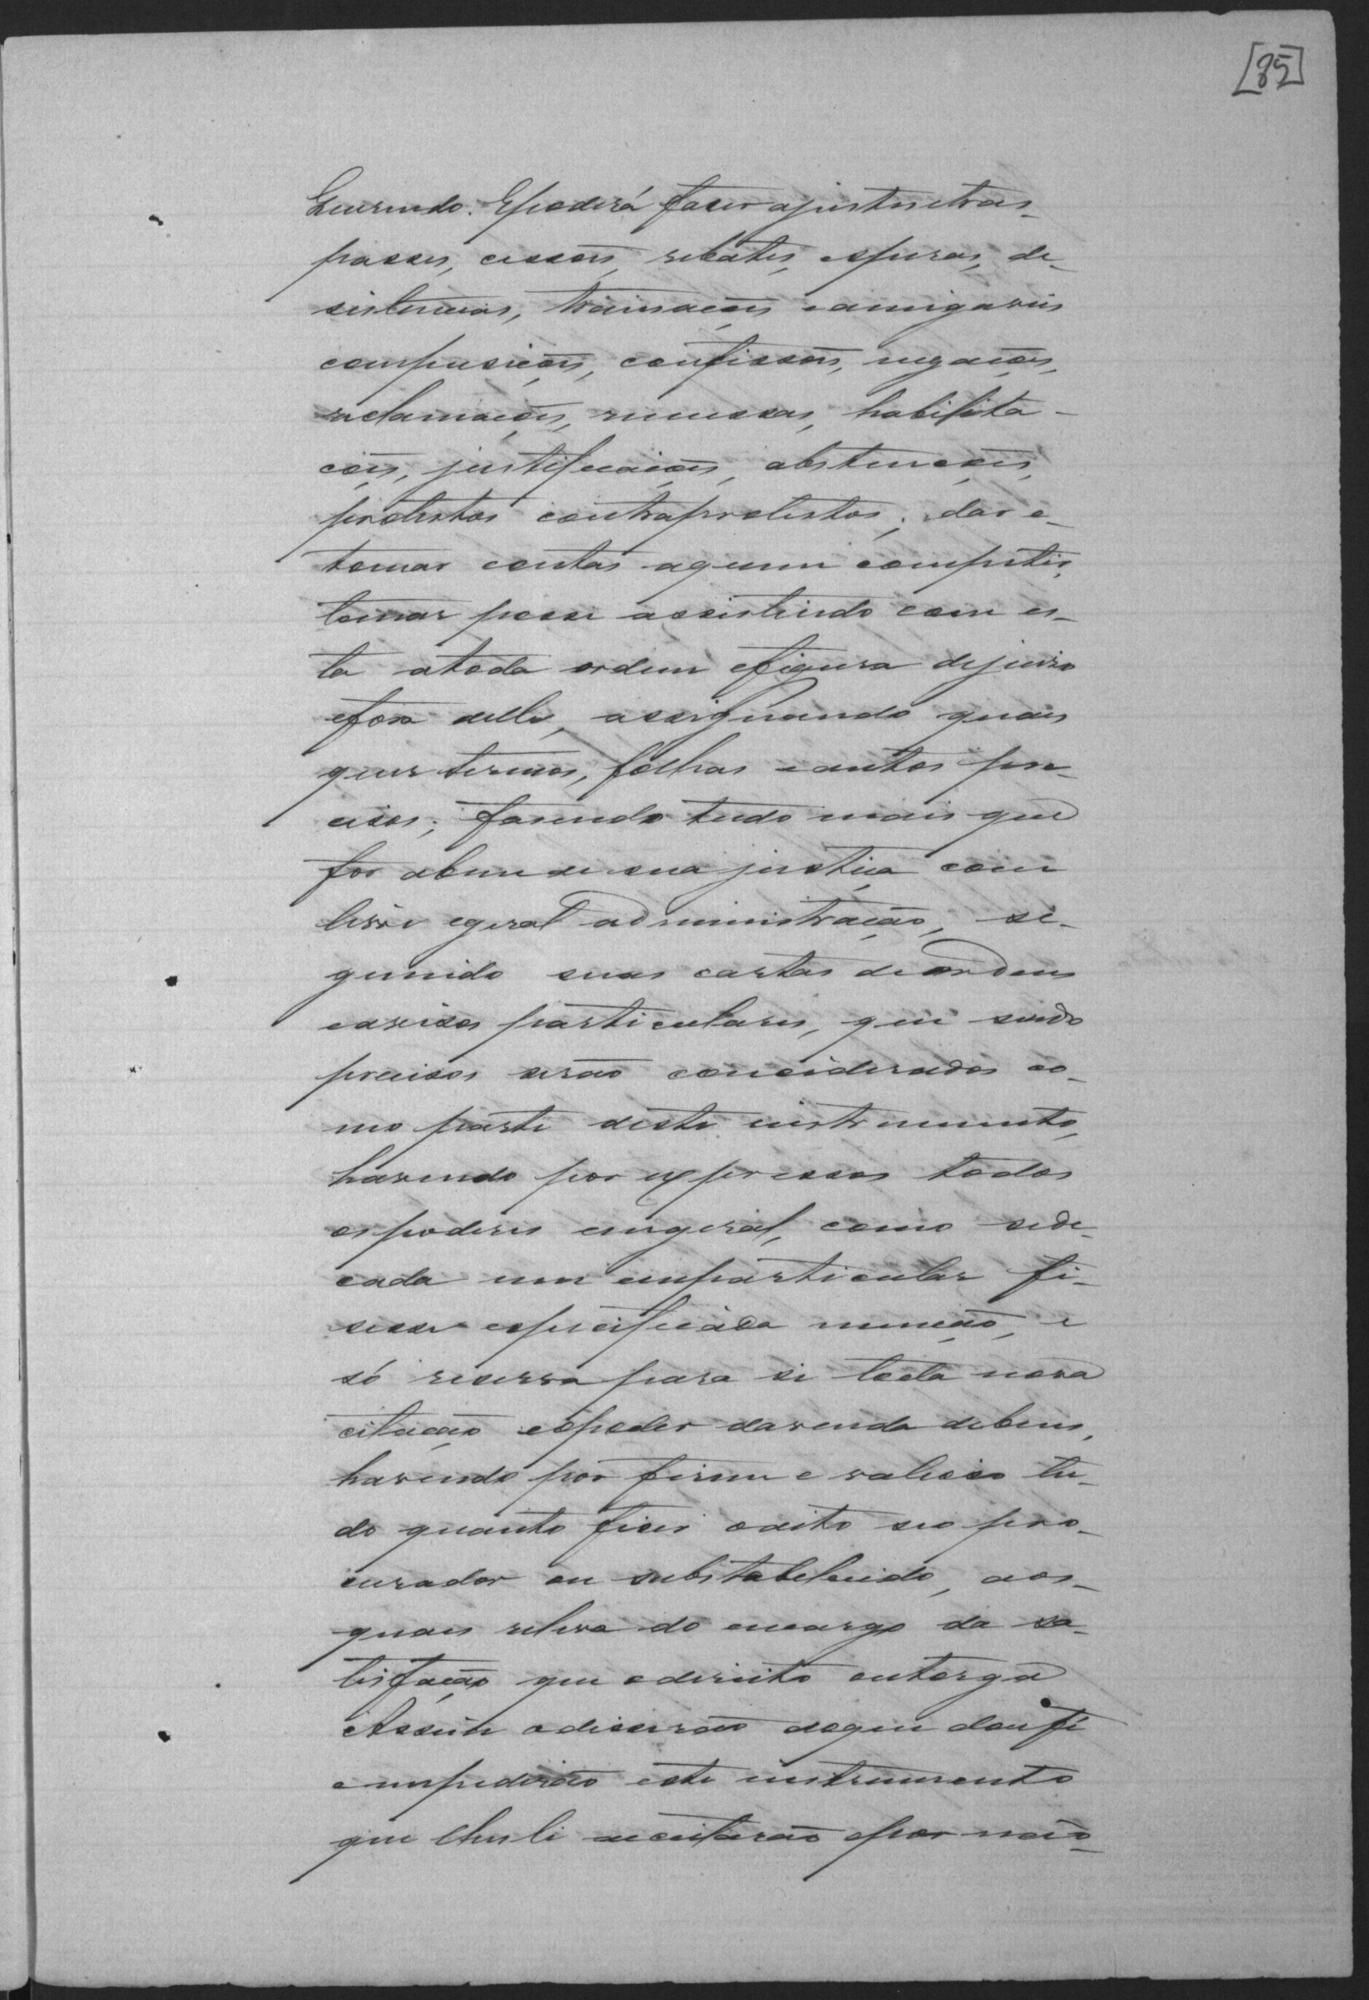 [85]
querendo. E poderá faser ajustes tras-
passes, cessões, rebates, esperas, de-
sistencias, transacões e amigaveis
composições, confissões, negações,
reclamações, remessas, habilita-
ções, justificações, abstenções,
protestos contraprotestos; dar e
tomar contas aquem competir,
tomar posse assistindo com es-
ta atoda ordem efigura dejuiso
efora delle, assignando quaes
quer termos, folhas e autos pre-
cisos; fasendo tudo mais que
for abem de sua justiça com
livre egeral administração, se-
guindo suas cartas deordens
eavisos particulares, que sendo
precisos serão considerados co-
mo parte deste instrumento,
havendo por expressos todos
ospoderes emgeral, como sede
cada um emparticular fi-
sesse especificada menção, e
só reserva para si toda nova
citação eopoder davenda debens,
havendo por firme e valioso tu-
do quanto fiser odito seo pro-
curador ou substabelecido, aos
quaes releva do encargo da sa-
tisfação que odireito outorga
Assim odisserão doque doufé
emepedirão este instrumento
que lhesli aceitarão epor não